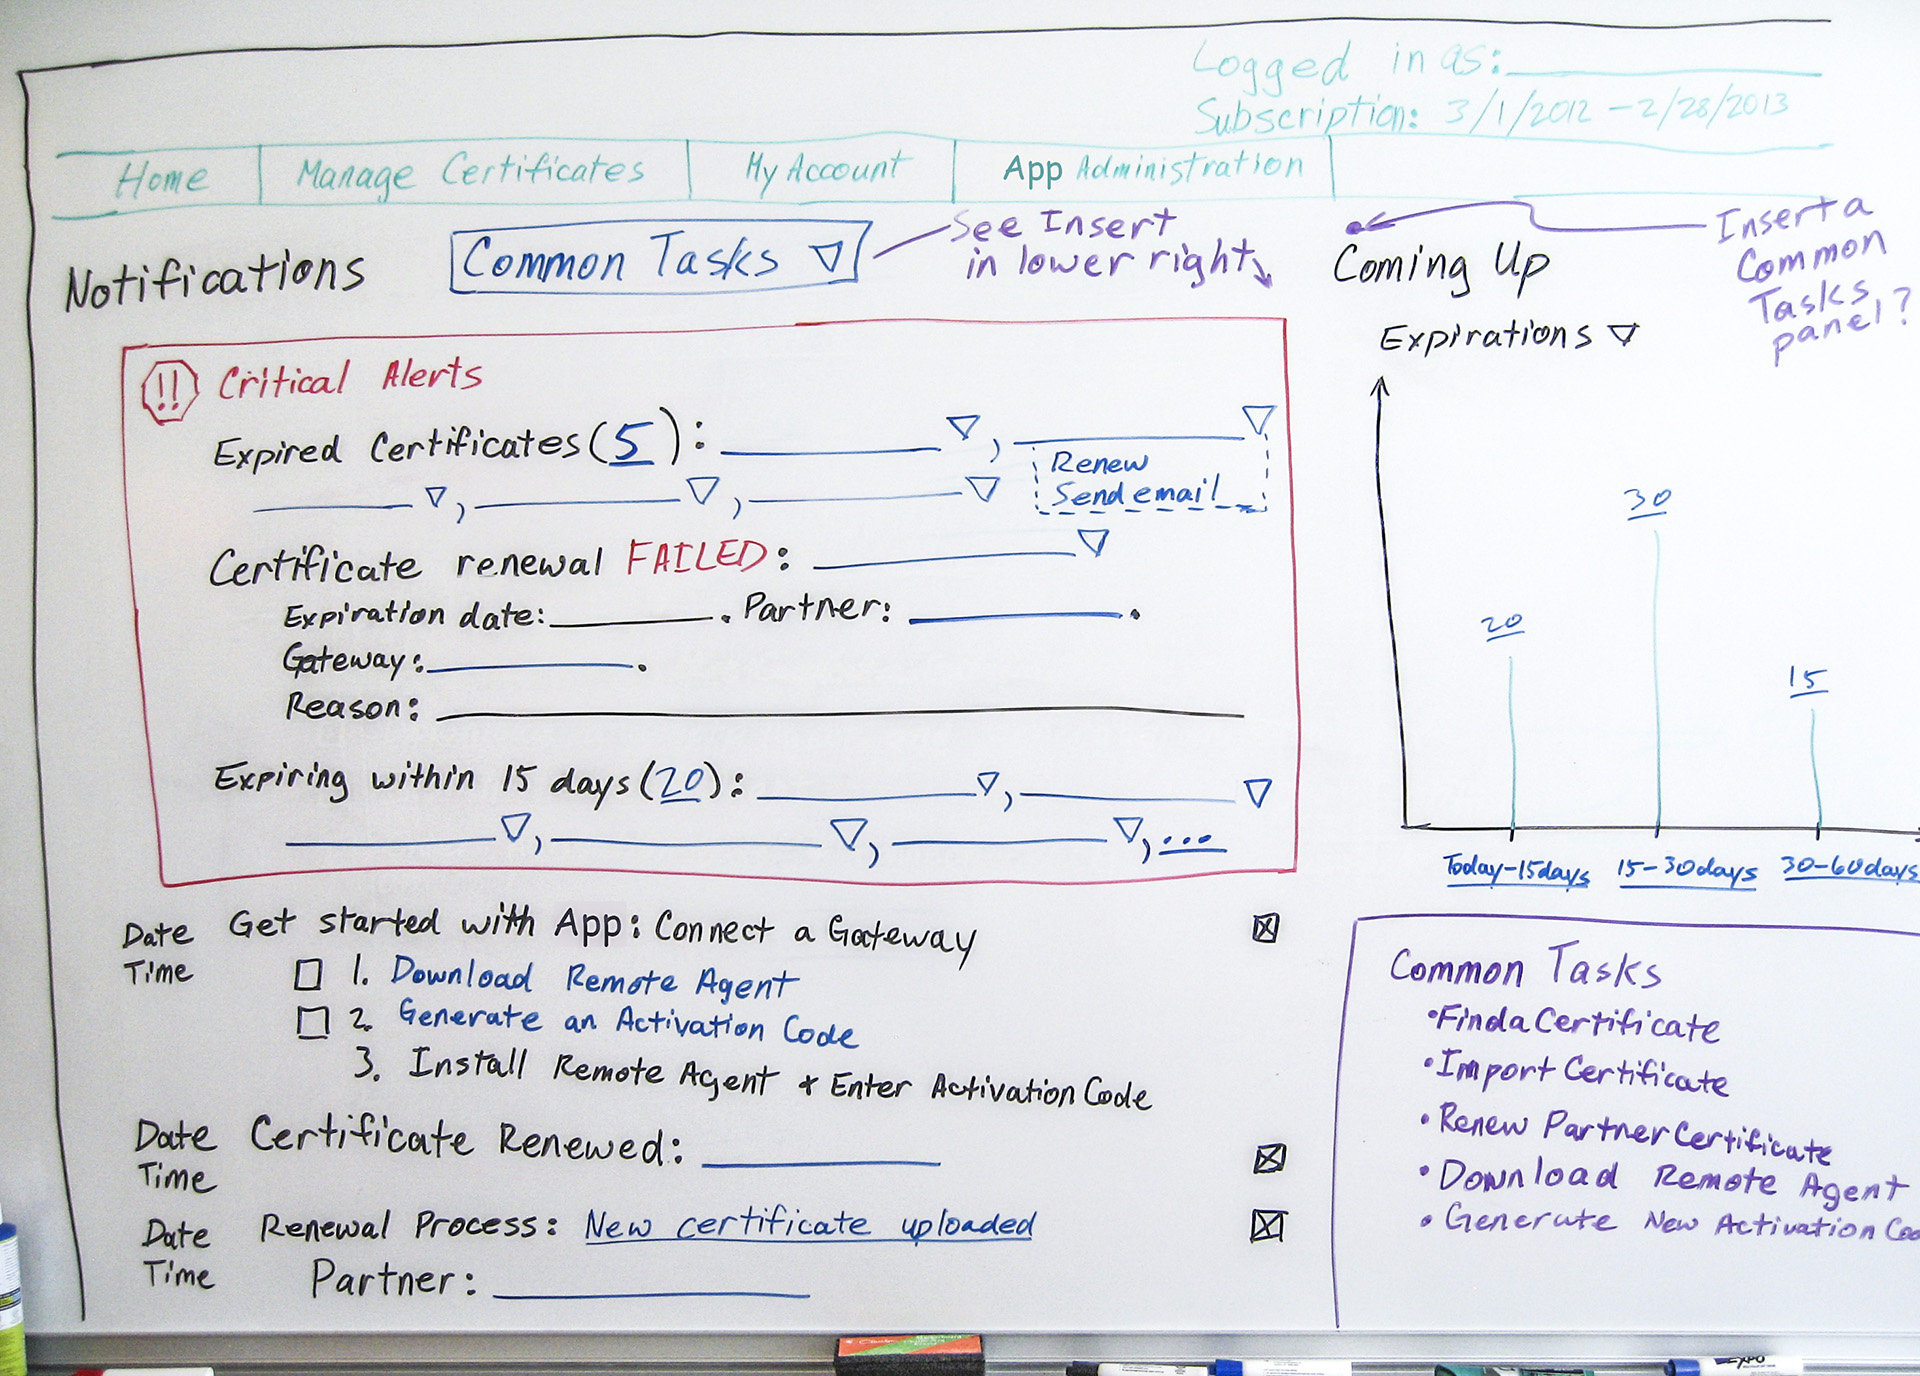 Logged in as:
Subscription: 3/1/2012 - 2/28/2013
Home Manage Certificates My Account App Administration
Notifications
Common Tasks
See Insert
in lower right
Coming Up
Insert a
Common
Tasks
panel?
Expirations
!! Critical Alerts
Expired Certificates (5):
Renew
Send email
Certificate renewal FAILED:
Expiration date: . Partner: .
Gateway: .
Reason:
Expiring within 15 days (20):
, ...
20
30
15
Today-15days 15-30days 30-60days
Date Get started with App: Connect a Gateway
Time
1. Download Remote Agent
2. Generate an Activation Code
3. Install Remote Agent & Enter Activation Code
Date Certificate Renewed:
Time
Date Renewal Process: New certificate uploaded
Time Partner:
Common Tasks
• Find a Certificate
• Import Certificate
• Renew Partner Certificate
• Download Remote Agent
• Generate New Activation Co
EXPO